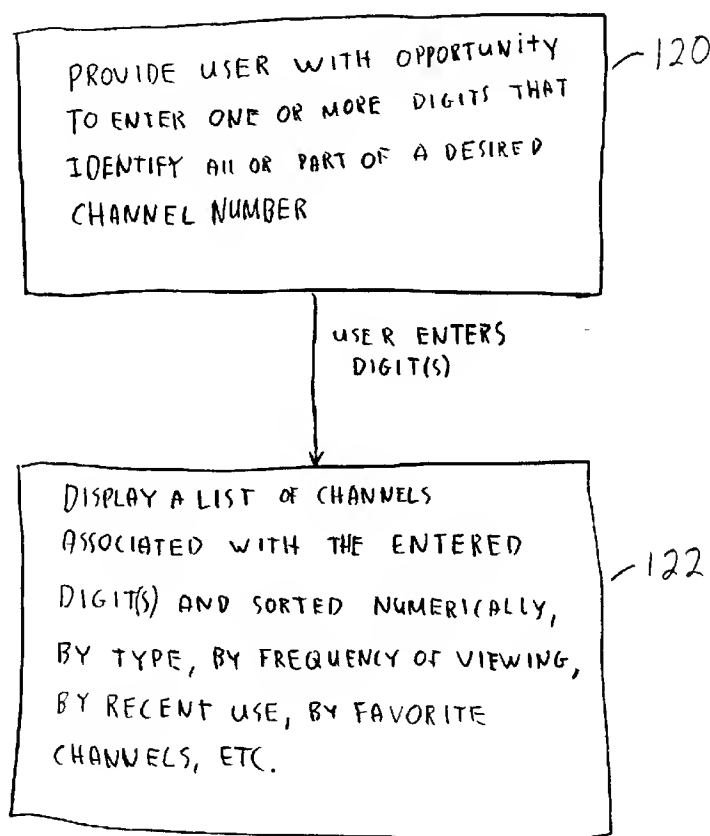 PROVIDE USER WITH OPPORTUNITY
TO ENTER ONE OR MORE DIGITS THAT
IDENTIFY All OR PART OF A DESIRED
CHANNEL NUMBER
120
USER ENTERS
DIGIT(S)
DISPLAY A LIST OF CHANNELS
ASSOCIATED WITH THE ENTERED
DIGIT(S) AND SORTED NUMERICALLY,
BY TYPE, BY FREQUENCY OF VIEWING,
BY RECENT USE, BY FAVORITE
CHANNELS, ETC.
122